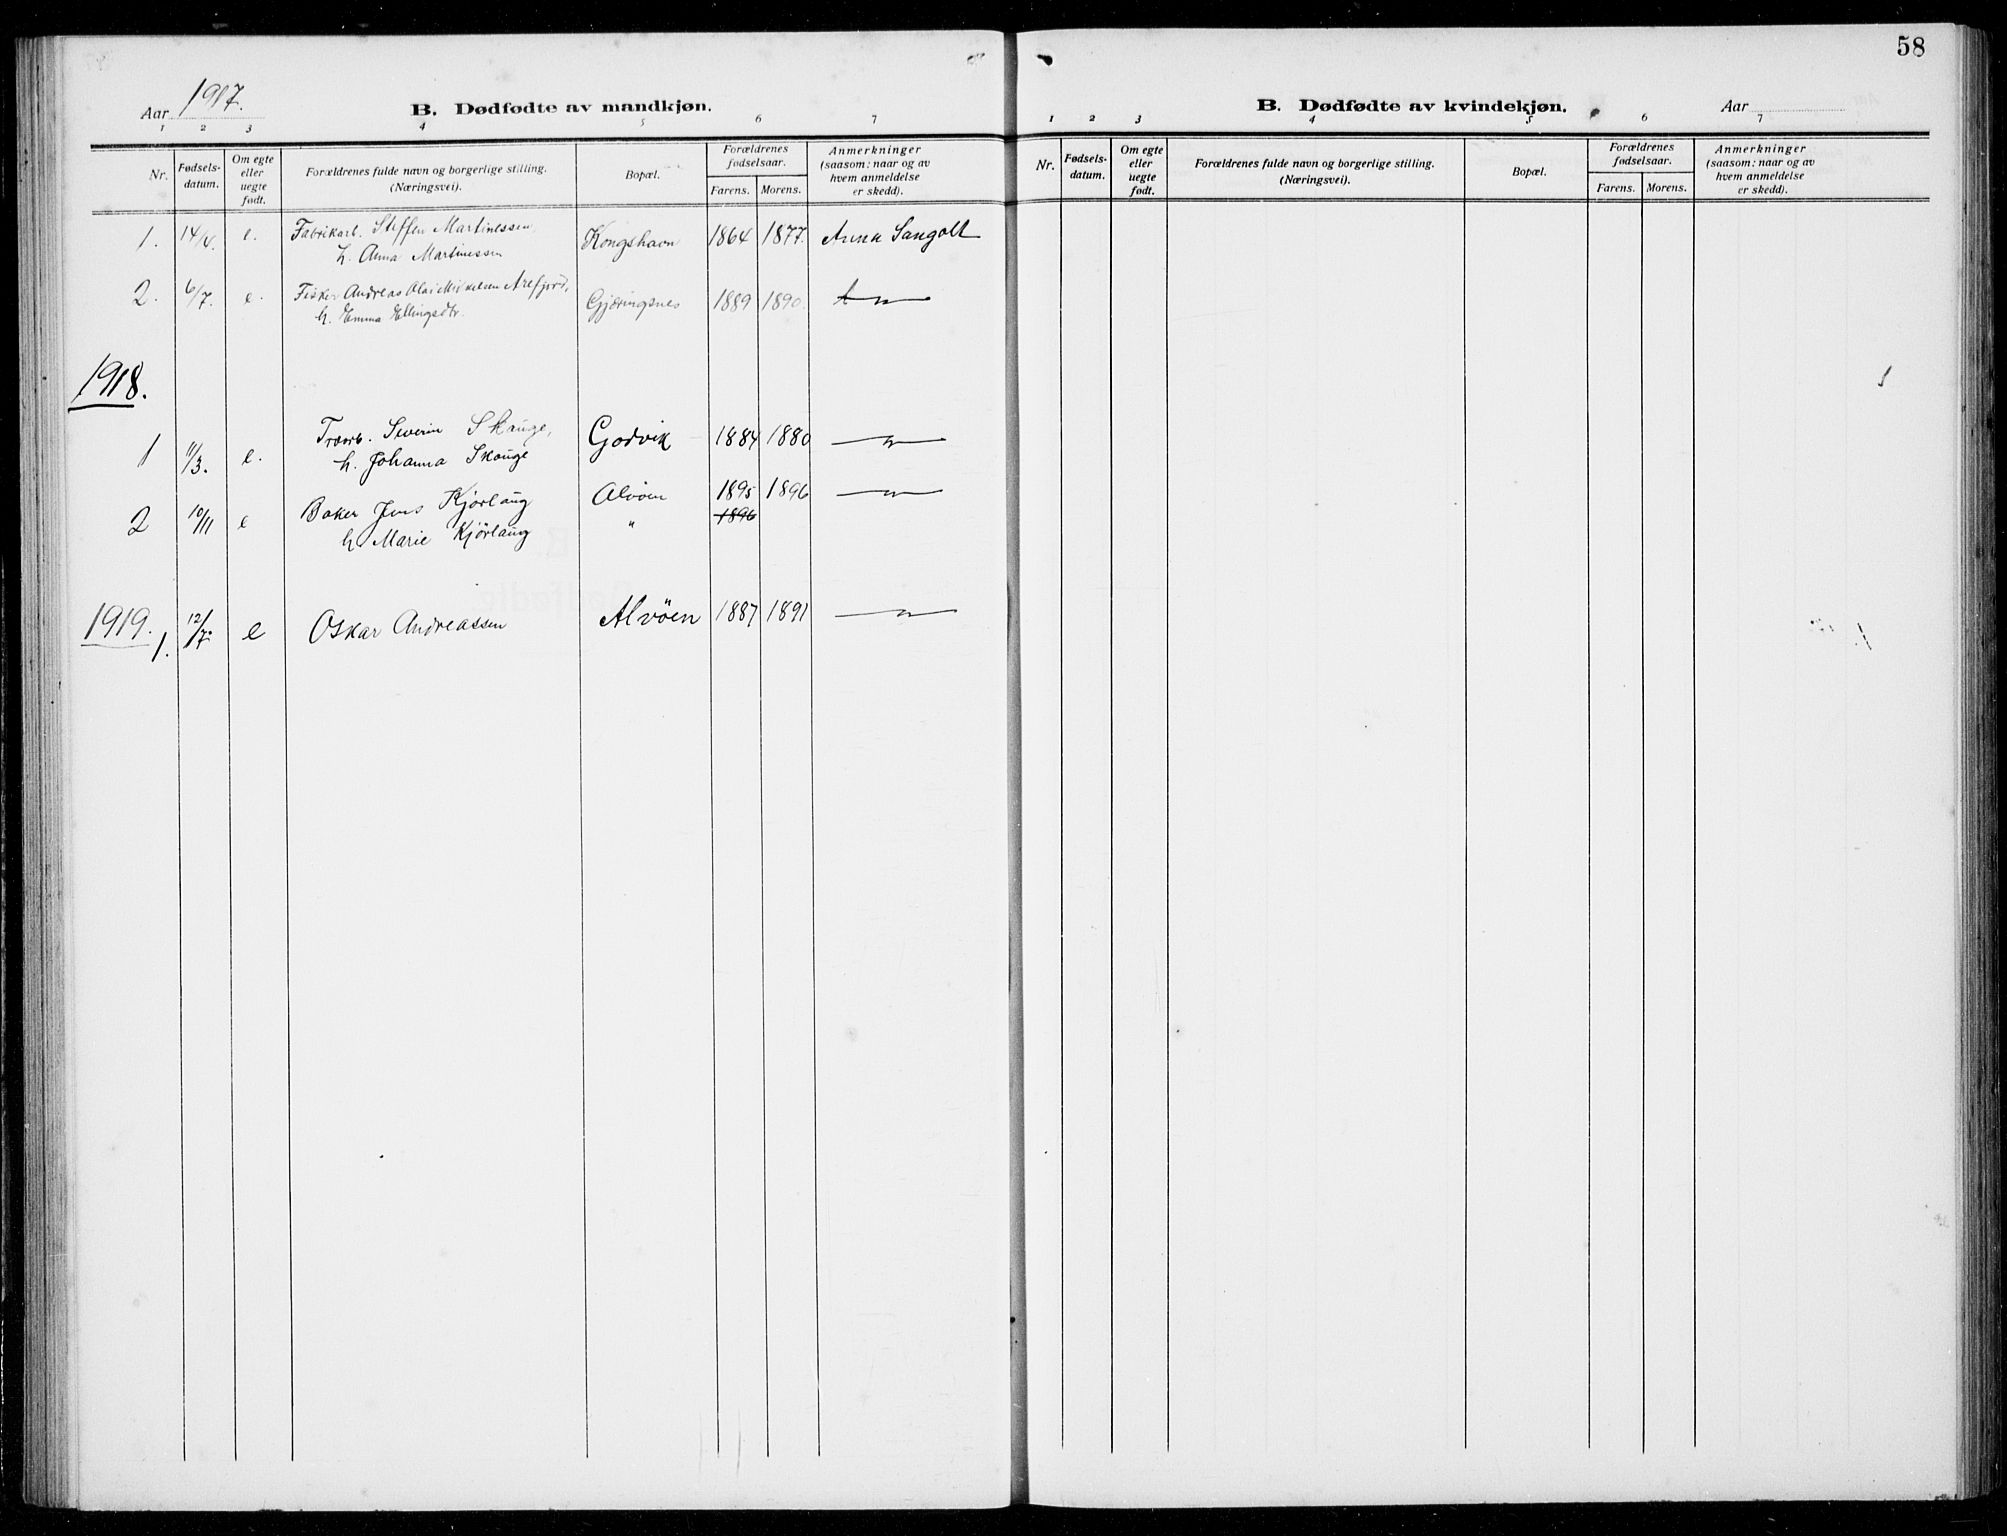 58
Aar 1917.
B. Dødfødte av mandkjøn.
1 2 3 4 5 6 7
Nr.
Fødsels-
datum.
Om egte
eller
uegte
født.
Forældrenes fulde navn og borgerlige stilling.
(Næringsvei).
Bopæl.
Forældrenes
fødselsaar.
Farens. Morens.
Anmerkninger
(saasom: naar og av
hvem anmeldelse
er skedd).
1. 14/4. e. Fabrikarb. Steffen Martinessen, Kongshavn 1864 1877. Anna Sangolt
h. Anna Martinessen
2. 6/7. e. Fisker Andreas Olai Mikkelsen Arefjord, Gjæringsnes 1889 1890.
h. Emma Ellingsdtr.
1918.
1 11/3. e. Træarb. Severin Skauge, Godvik 1884 1880 — " —
h. Johanna Skauge
2 10/11 e Baker Jens Kjørlaug Alvøen 1895 1896 — " —
1896
h Marie Kjørlaug "
1919. 1. 12/7. e Oskar Andreassen Alvöen 1887 1891 — " —
B. Dødfødte av kvindekjøn.
Aar
1 2 3 4 5 6 7
Nr.
Fødsels-
datum.
Om egte
eller
uegte
født.
Forældrenes fulde navn og borgerlige stilling.
(Næringsvei).
Bopæl.
Forældrenes
fødselsaar.
Farens. Morens.
Anmerkninger
(saasom: naar og av
hvem anmeldelse
er skedd).